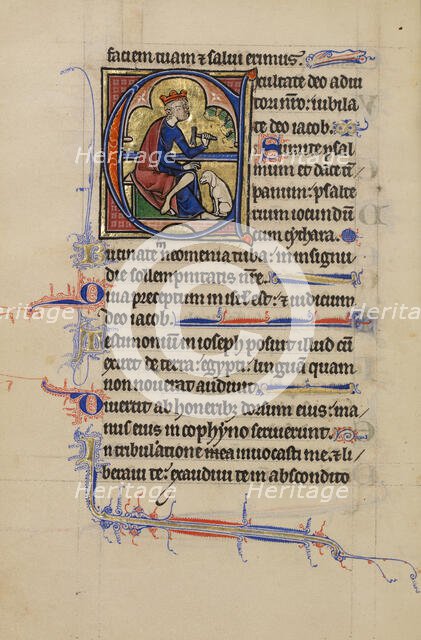 faciem tuam & salui erimus.
Exultate deo adiu
tori nr̄o: iubila
te deo iacob.
Sumite psal
mum et date tȳ
panum: psalte
rium iocundū
cum cythara.
Bucinate neomenia tuba: in insigni
die sollempnitatis nr̄e.
Quia preceptum in isrl̄ est: & iudicium
deo iacob.
Testimoniū in ioseph posuit illud cū
exiret de terra egypti: linguam quam
non nouerat audiuit.
Diuertit ab honeribȝ dorsum eius: ma
nus eius in cophyno seruierunt.
In tribulatione mea inuocasti me & li
beraui te: exaudiui te in abscondito
Heritage
Heritage
Heritage
Heritage
Heritage
Heritage